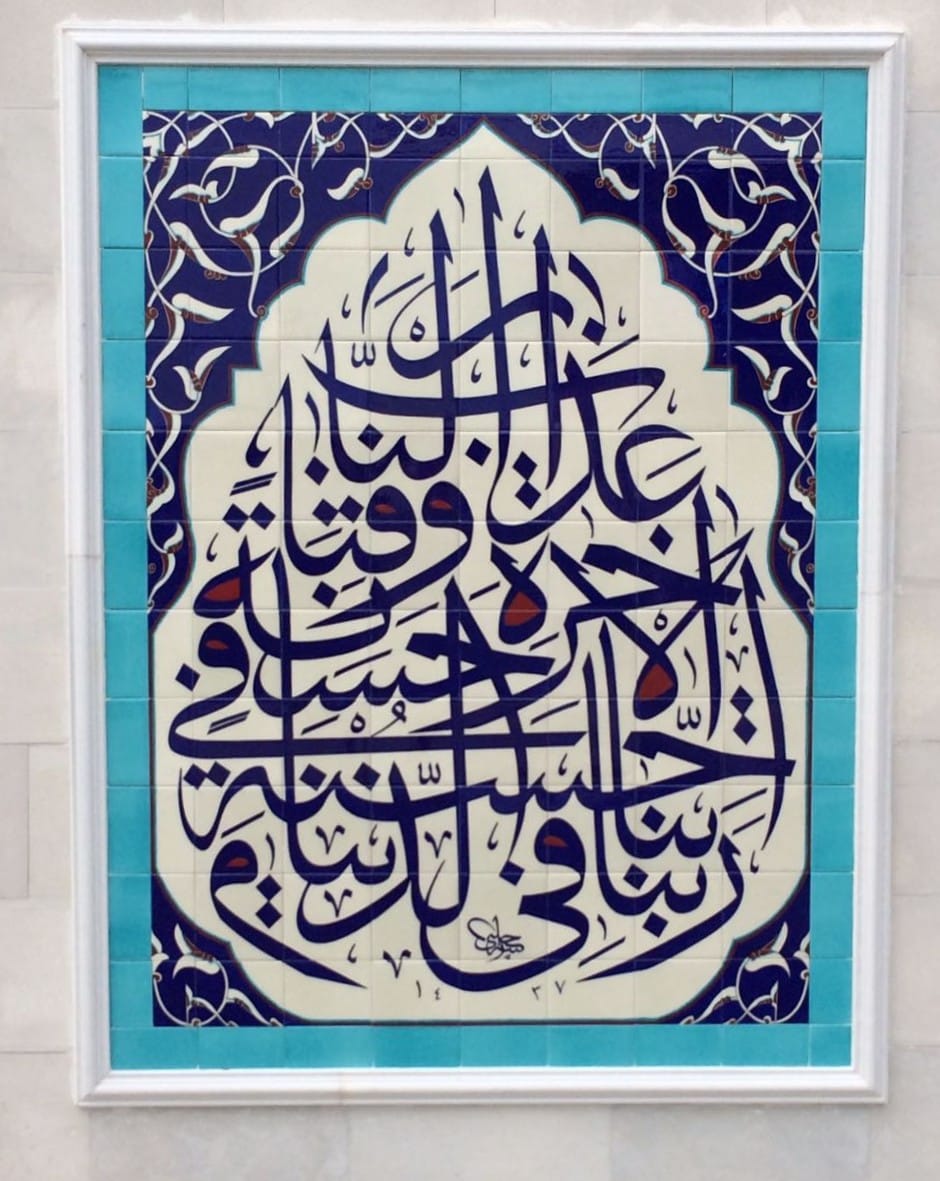 ربنا اتنا في الدنيا
حسنة وفي
الاخرة حسنة
وقنا
عذاب النار
١٤٣٧